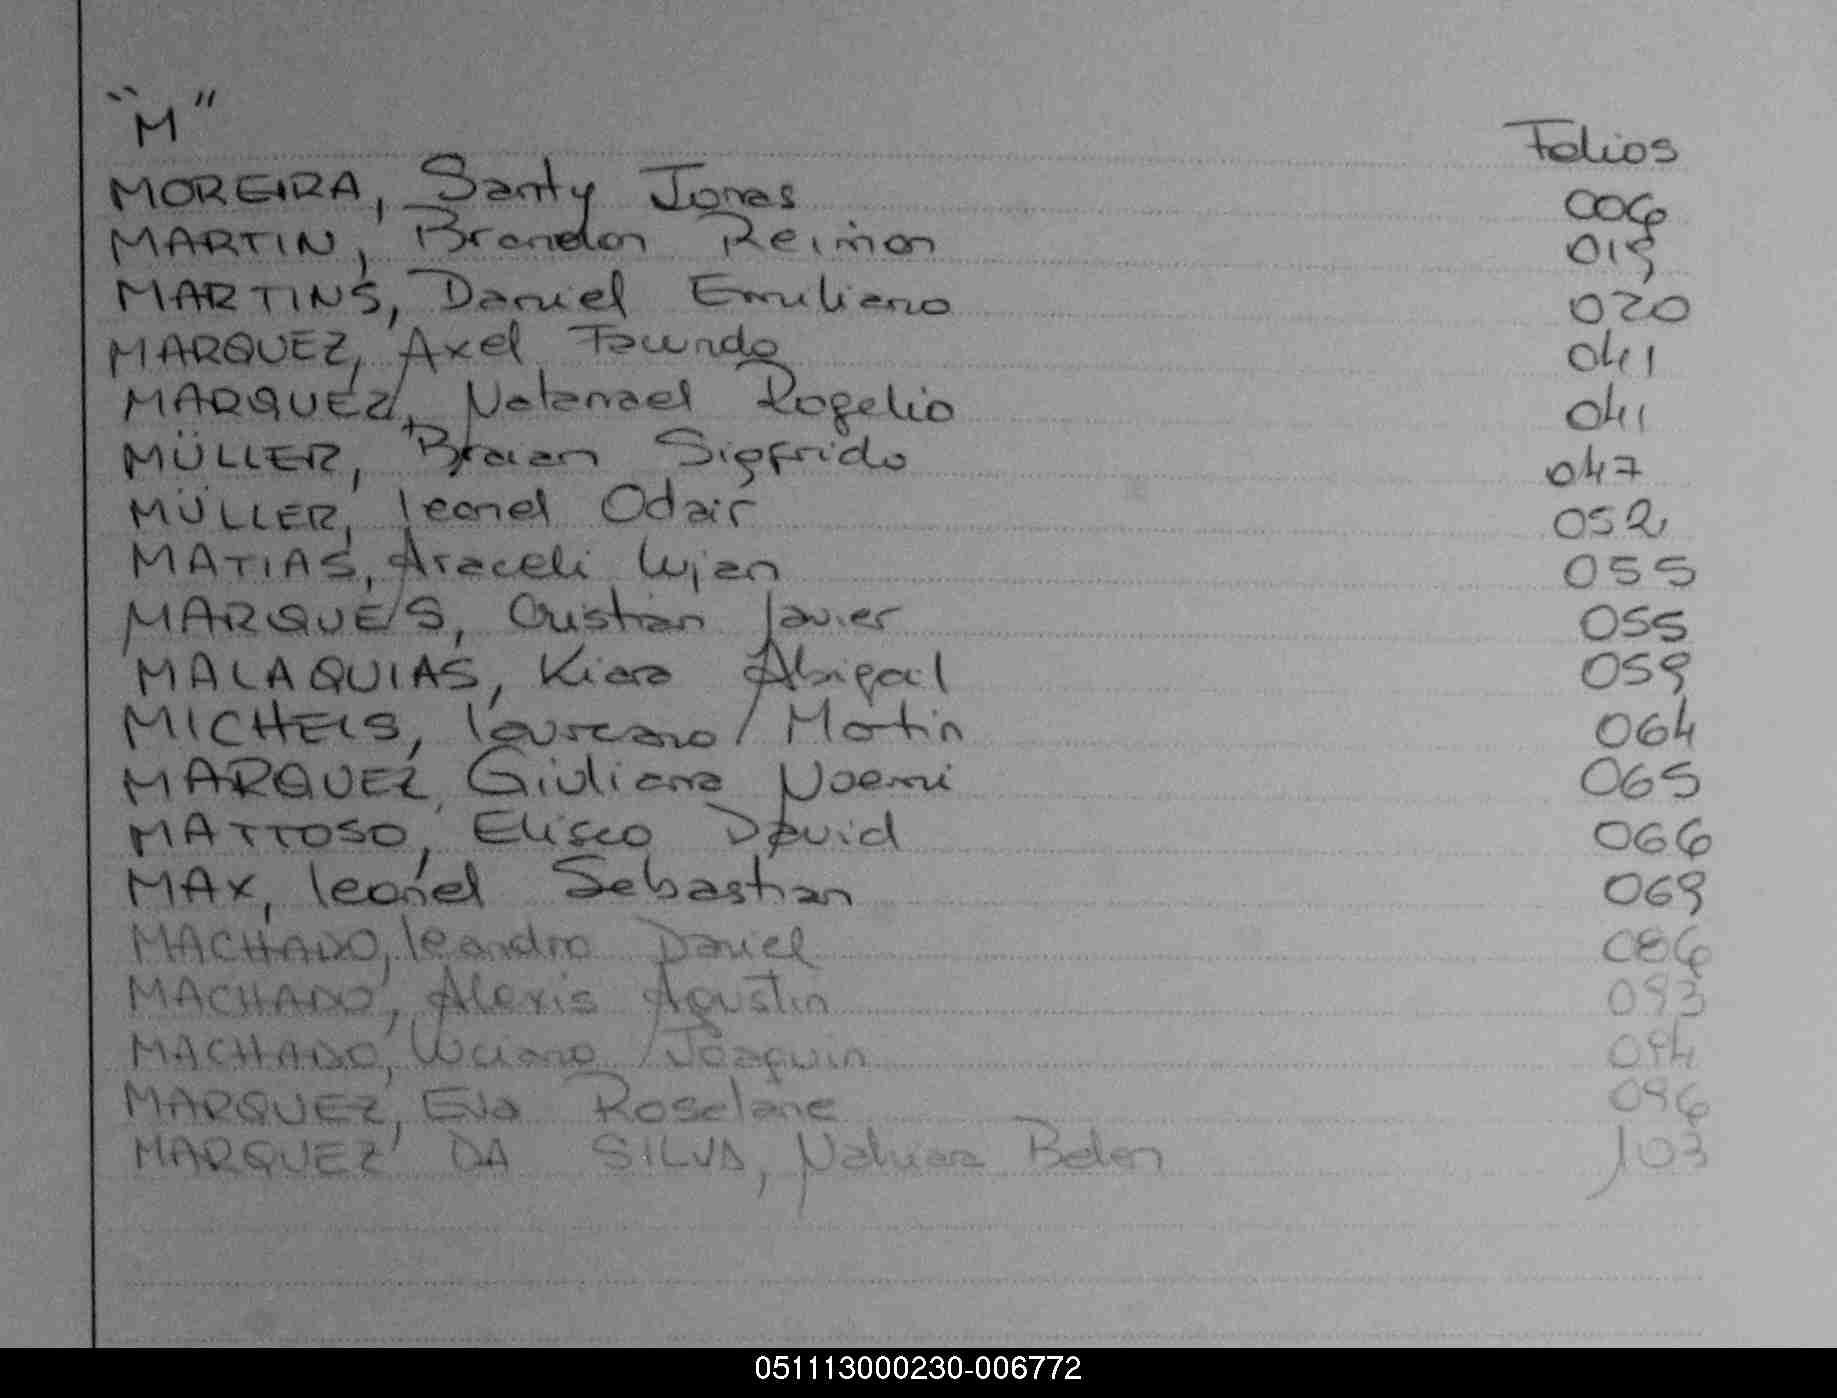 "M"
Folios
MOREIRA, Santy Jonas 006
MARTIN, Brandon Reimon 019
MARTINS, Daniel Emiliano 020
MARQUEZ, Axel Facundo 041
MARQUEZ, Natanael Rogelio 041
MÜLLER, Braian Sigfrido 047
MÜLLER, Leonel Odair 052
MATIAS, Araceli Lujan 055
MARQUES, Cristian Javier 055
MALAQUIAS, Kiara Abigail 059
MICHELS, Laureano Martin 064
MARQUEZ, Giuliana Noemi 065
MATTOSO, Eliseo David 066
MAX, Leonel Sebastian 069
MACHADO, Leandro Daniel 086
MACHADO, Alexis Agustin 093
MACHADO, Luciano Joaquin 094
MARQUEZ, Eva Roselane 096
MARQUEZ DA SILVA, Naluara Belen 103
051113000230-006772